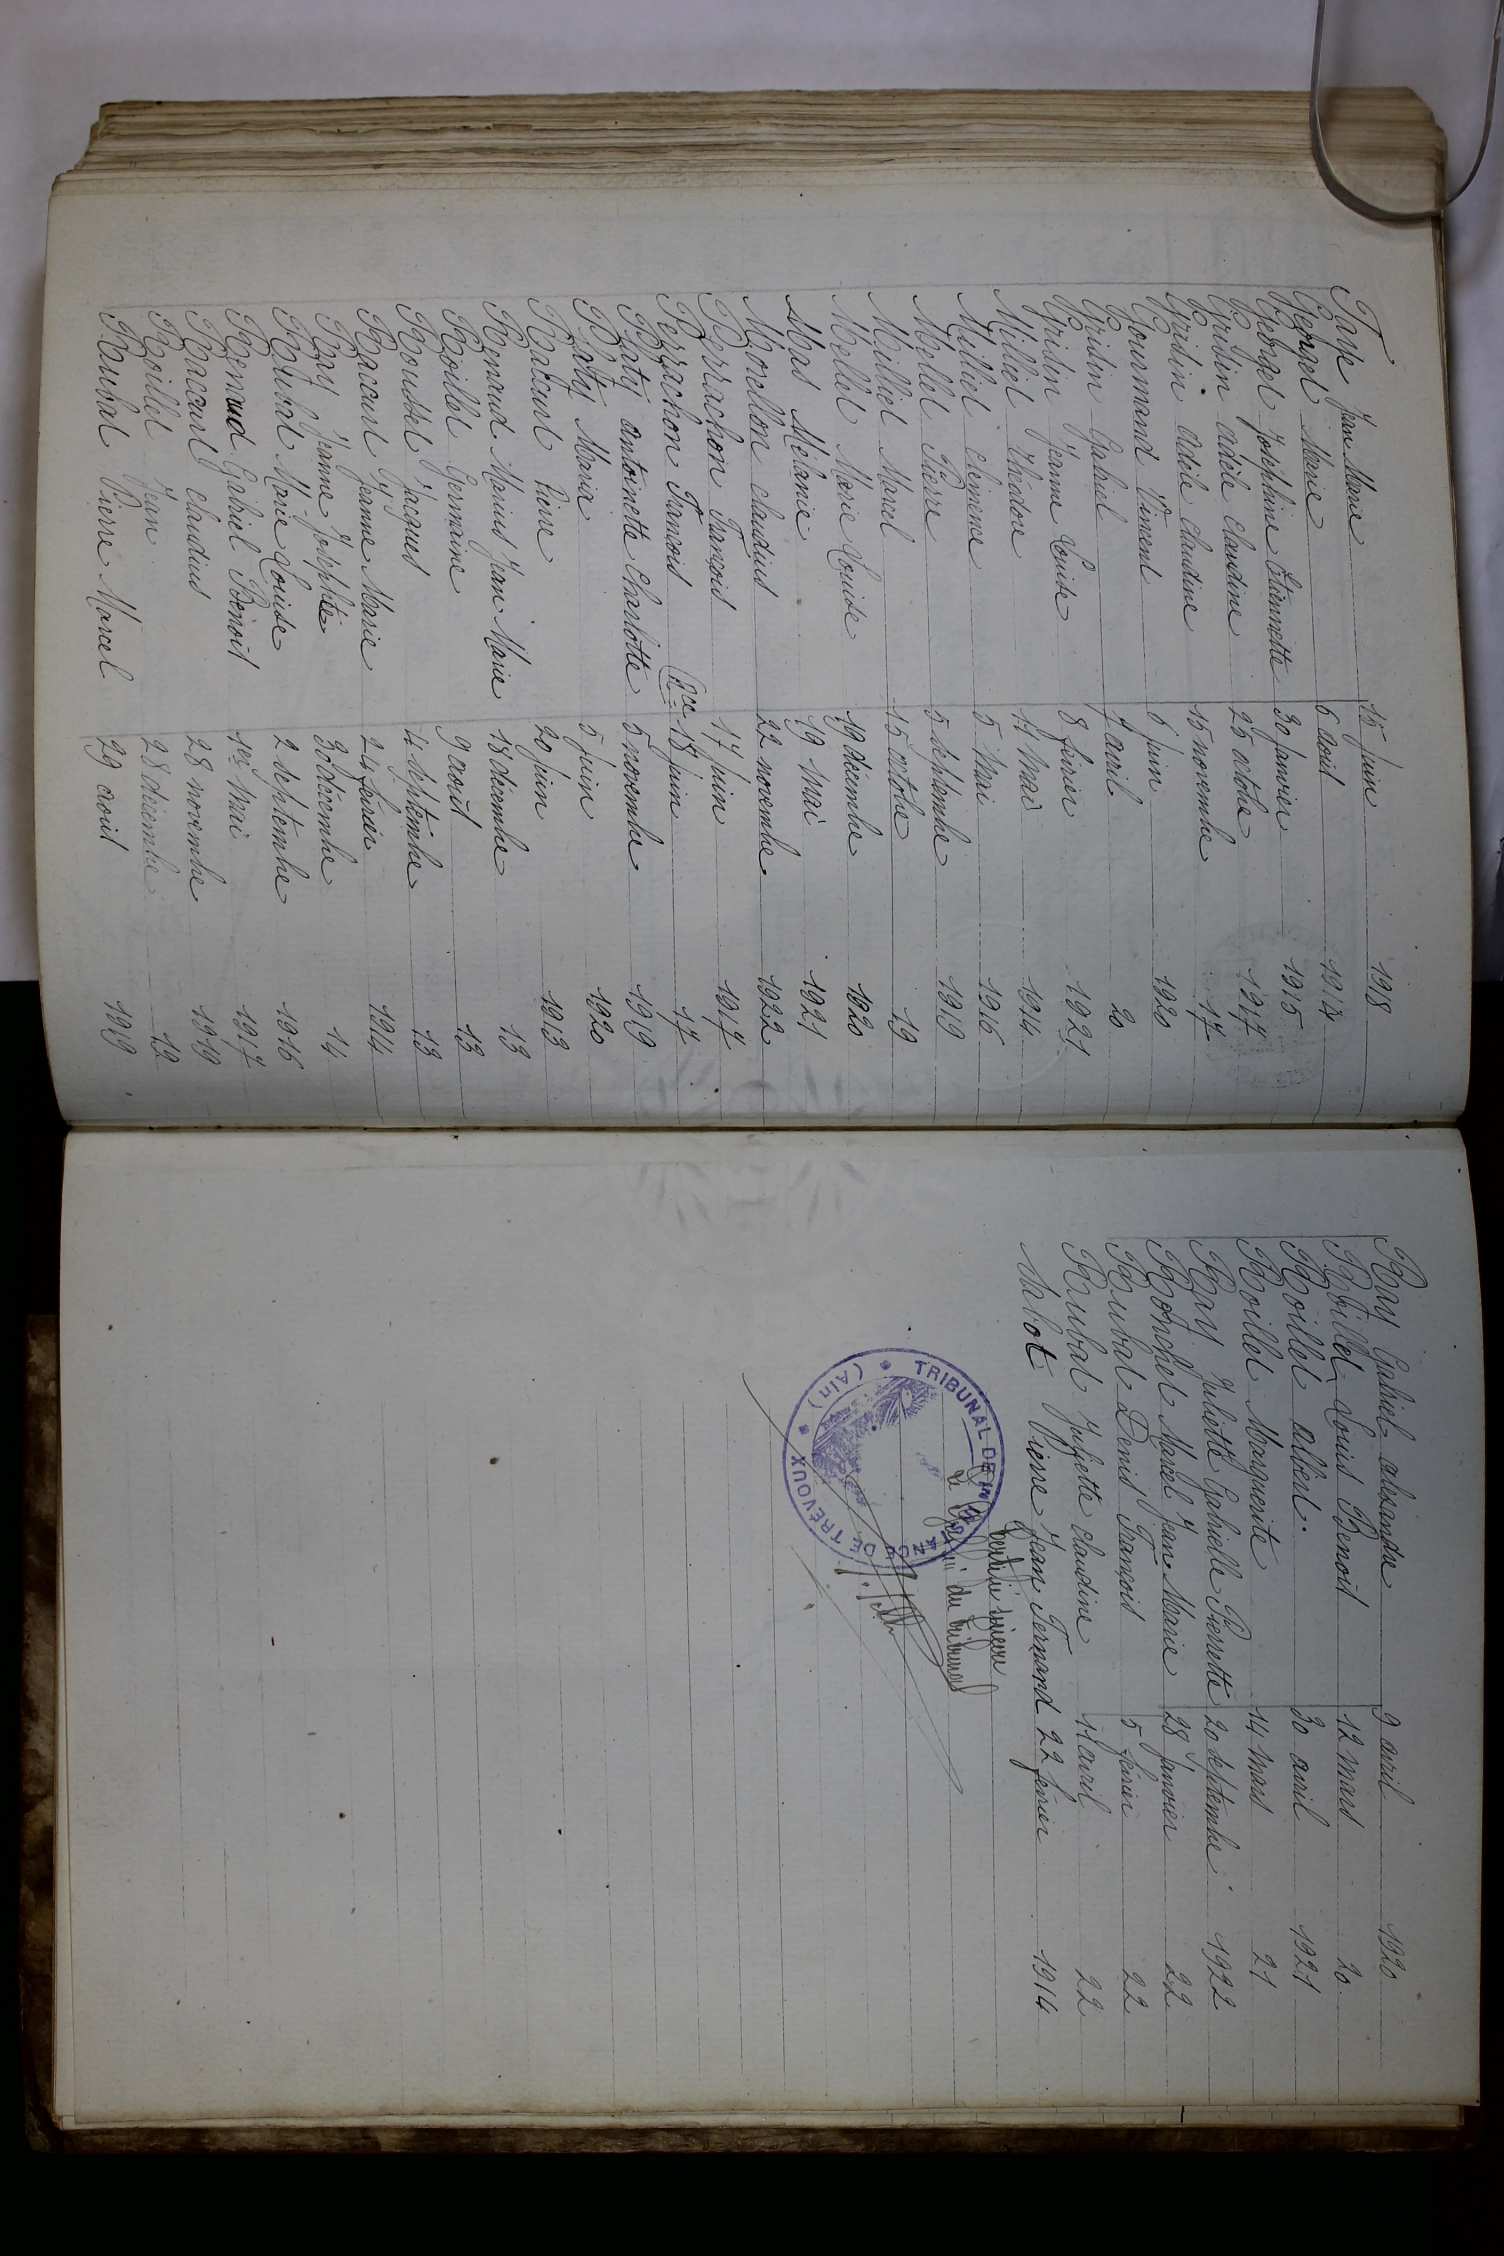 Jean Marie 15 juin 1918
Georgel Marie 6 août 1914
Georgel Joséphine Etiennette 30 janvier 1915
Grisin adèle claudine 25 octobre 1917
Grisin adèle claudine 15 novembre 17
Gourmand Vincent 6 juin 1920
Grisin Gabriel 7 avril 20
Grisin Jeanne Louise 8 février 1921
Milliet Théodore 11 mai 1914
Milliet clémence 5 mai 1916
Mellet Pierre 5 septembre 1919
Milliet Marcel 15 octobre 19
Mellet Marie Louise 19 décembre 1920
Mas Mélanie 19 mai 1921
Morellon claudius 22 novembre 1922
Perrachon François 17 juin 1917
Perrachon François 18 juin 17
Baty antoinette Charlotte 5 novembre 1919
Baty Maria 5 juin 1920
Raccurt Pierre 20 juin 1913
Renaud Marius Jean Marie 18 décembre 13
Roillet Germaine 9 août 13
Roustet Jacques 4 septembre 13
Raccurt Jeanne Marie 24 février 1914
Ray Jeanne Josephte 30 décembre 14
Rubat Marie Louise 2 septembre 1916
Renaud Gabriel Benoît 1er mai 1917
Raccurt claudius 28 novembre 1919
Roillet Jean 28 décembre 19
Roubat Pierre Marcel 29 août 1919
Ray Gabriel alexandre 9 avril 1920
Roillet Louis Benoit 12 mars 20
Roillet albert. 30 avril 1921
Roillet Marguerite 14 mars 21
Ray Juliette Gabrielle Pierrette 20 septembre 1922
Ronchet Marcel Jean Marie 28 janvier 22
Rubat Denis François 5 février 22
Rubat Juliette claudine 11 avril 22
Sabot Pierre Jean Fernand 22 février 1914
Certifié sincère
Le Greffier du tribunal
TRIBUNAL DE 1re INSTANCE DE TRÉVOUX
(Ain)